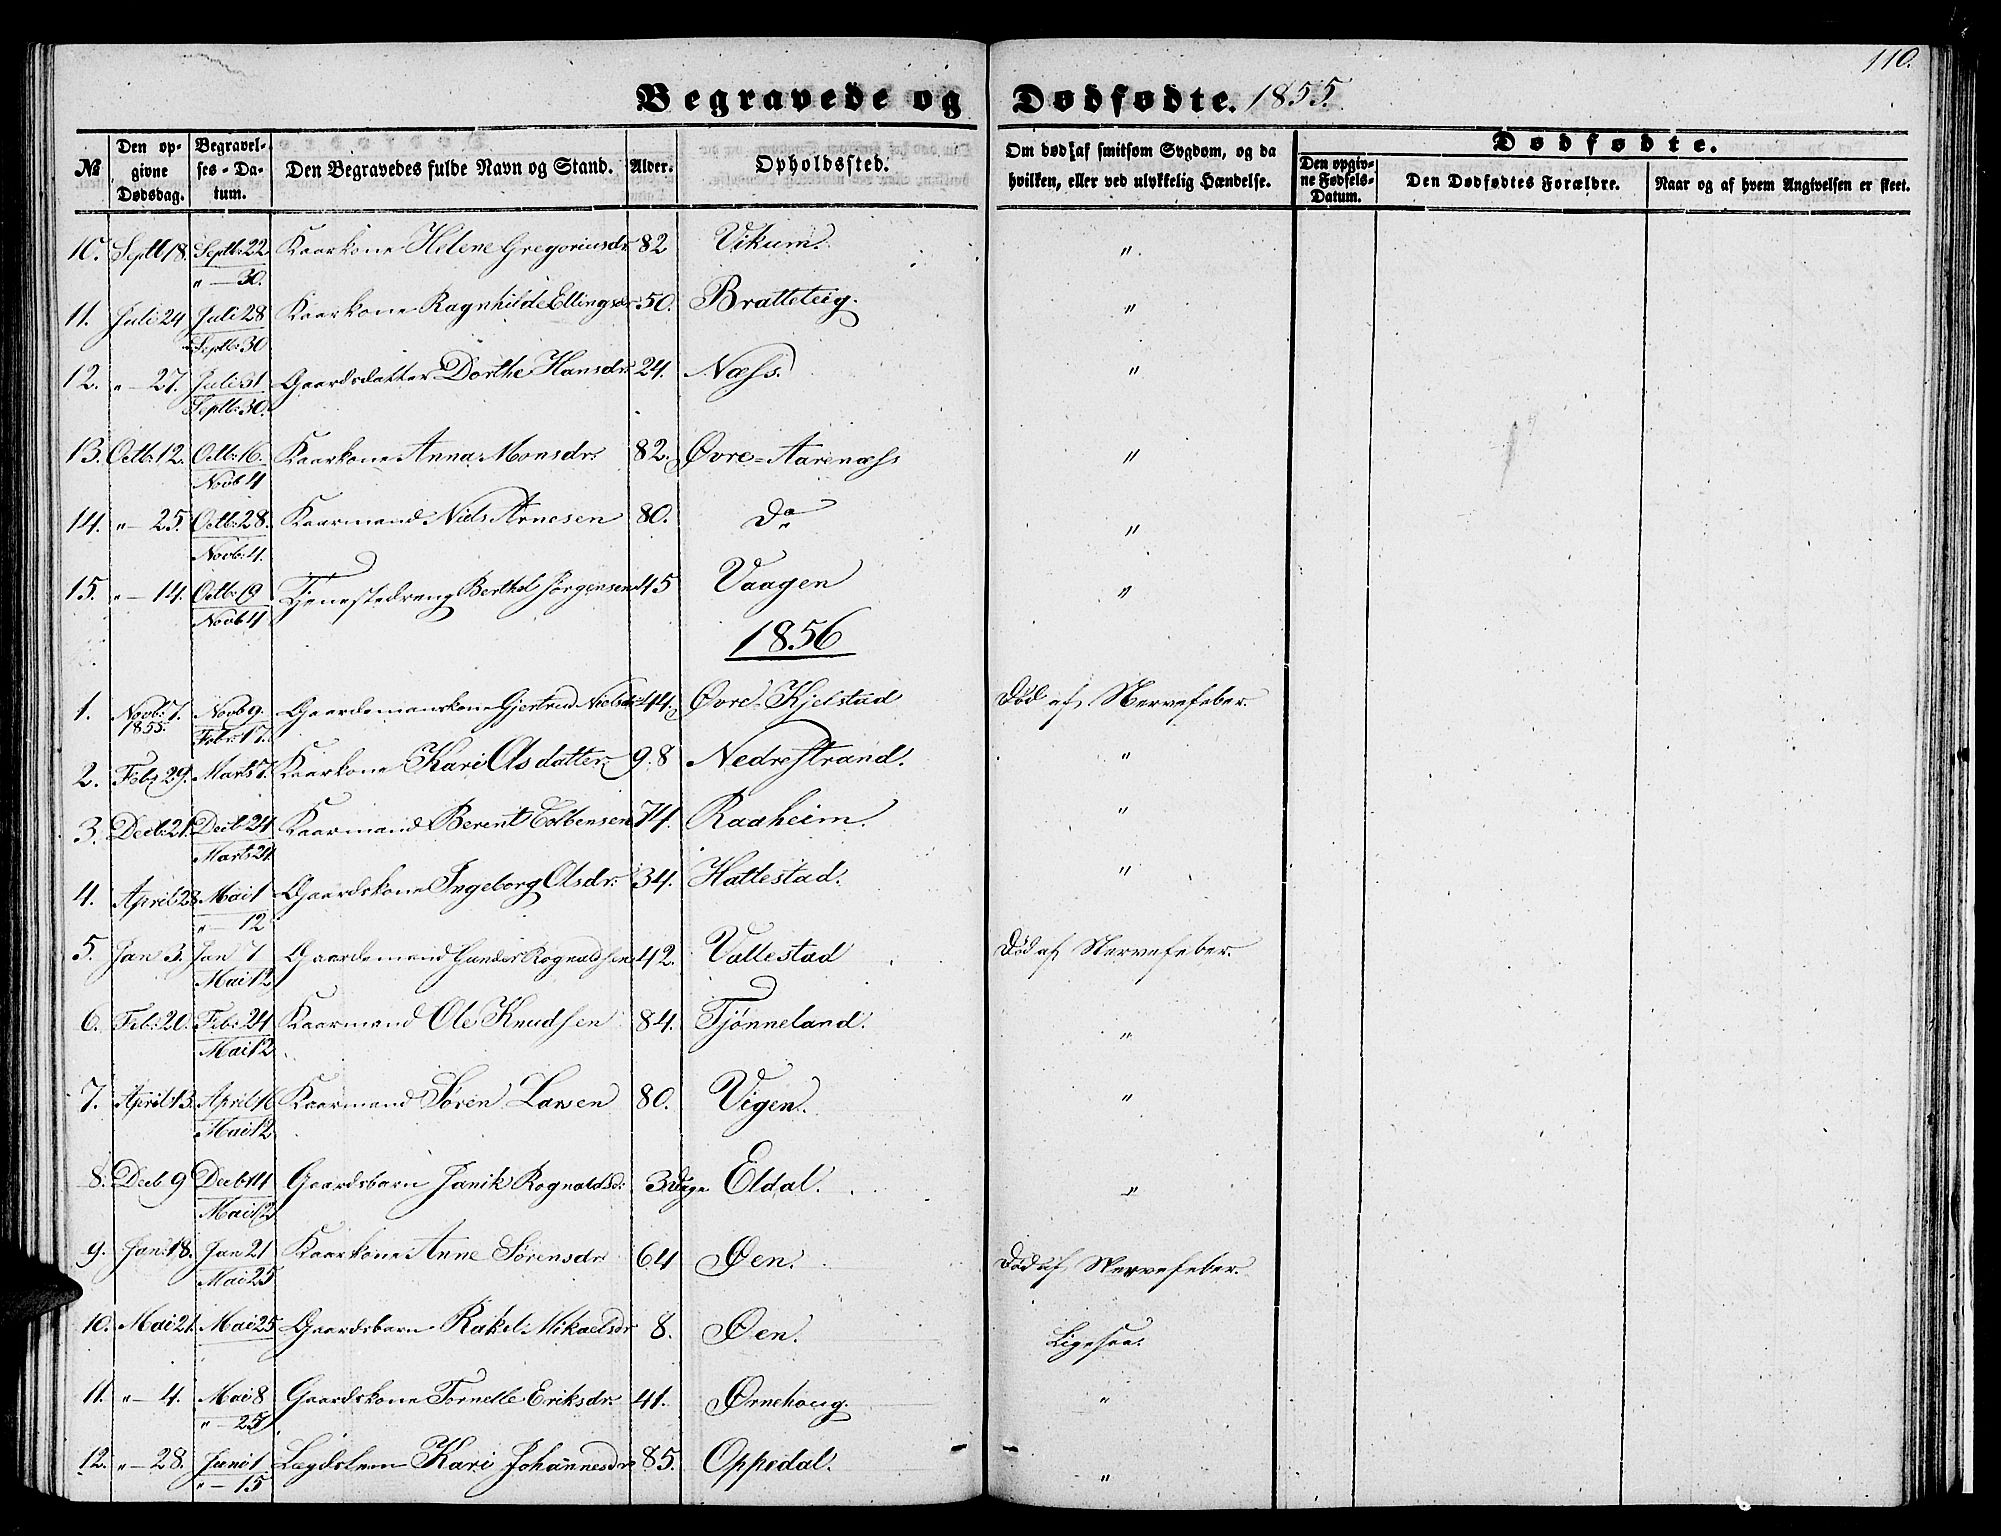 110.
Begravede og Dødfødte. 1855.
№ Den opgivne Dødsdag. Begravelses-Datum. Den Begravedes fulde Navn og Stand. Alder. Opholdssted. Om død af smitsom Sygdom, og da hvilken, eller ved ulykkelig Hændelse. Dødfødte. Den opgivne Fødsels-Datum. Den Dødfødtes Forældre. Naar og af hvem Angivelsen er skeet.
10. Septb 18. Septb: 22 Kaarkone Helene Gregoriusdr 82 Vikum. "
" — 30.
11. Juli 24 Juli 28 Kaarkone Ragnhilde Ellingsdr: 50. Bratteteig. "
Septb: 30
12. " — 27. Juli 31 Gaardsdatter Dorthe Hansdr: 24. Næss. "
Septb: 30.
13. Octb: 12. Octb: 16. Kaarkone Anna Monsdr: 82. Øvre-Aarenæss "
Novb 4
14. " — 25. Octb: 28. Kaarmand Niels Arnesen 80. Do "
Novb: 4.
15. " — 14. Octb: 19 Tjenestedreng Berthel Jørgensen 45 Vaagen "
Novb 4
1856
1. Novb: 7. 1855. Novb 9. Gaardmanskone Gjertrud Nielsdr: 44. Øvre-Kjelstad Død af Nervefeber.
Febr: 17.
2. Feb: 29. Marts 7. Kaarkone Kari Olsdatter 98 Nedrestrand. "
3. Decb: 21. Decb 24 Kaarmand Berent Colbensen 74. Raaheim. "
Marts 24
4. April 28 Mai 1 Gaardskone Ingeborg Olsdr: 34. Hattestad. "
" — 12
5. Jan 3. Jan 7 Gaardemand Rognaldsen 42. Vallestad Død af Nervefeber.
Mai 12
6. Feb: 20. Feb: 24 Kaarmand Ole Knudsen 84. Tjønneland. "
Mai 12
7. April 13. April 16 Kaarmand Søren Larsen 80. Vigen. "
Mai 12
8. Decb 9 Decb 14 Gaardsbarn Janik Rognaldsdr 3 Uger Eldal. "
Mai 12
9. Jan: 18. Jan 21 Kaarkone Anne Sørensdr: 64 Øen. Død af Nervefeber.
Mai 25
10. Mai 21. Mai 25 Gaardsbarn Rakel Mikaelsdr 8. Øen. Ligesaa.
11. " — 4. Mai 8 Gaardskone Tornelle Eriksdr: 41. Ørnehoug. "
" — 25
12. " — 28. Juni 1 Lægdslem Kari Johannesdr 85. Oppedal. "
" — 15